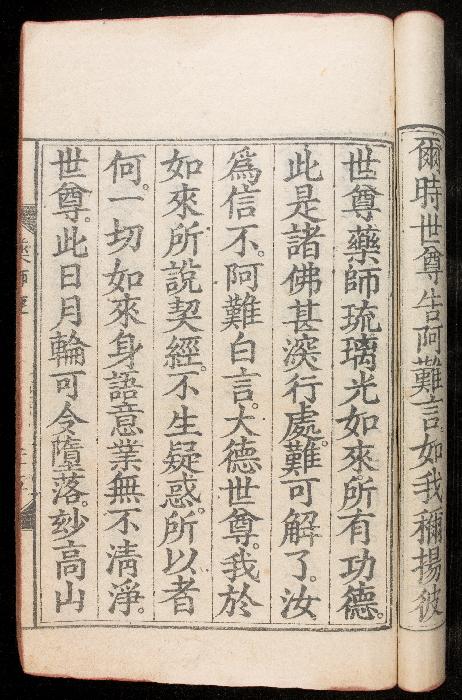 爾時世尊告阿難言如我稱揚彼
世尊藥師琉璃光如來。所有功德。
此是諸佛甚深行處。難可解了。汝
為信不。阿難白言。大德世尊。我於
如來所說契經。不生疑惑。所以者
何。一切如來身語意業無不清淨。
世尊。此日月輪可令墮落。妙高山
藥師經